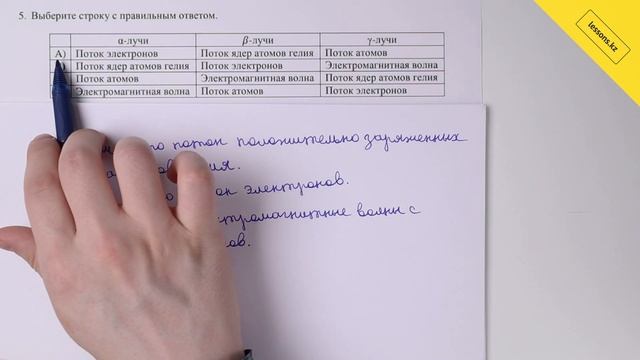 5. Выберите строку с правильным ответом.
α-лучи β-лучи γ-лучи
А) Поток электронов Поток ядер атомов гелия Поток атомов
Поток ядер атомов гелия Поток электронов Электромагнитная волна
Поток атомов Электромагнитная волна Поток ядер атомов гелия
Электромагнитная волна Поток атомов Поток электронов
поток положительно заряженных
электронов.
волны с
lessons.kz